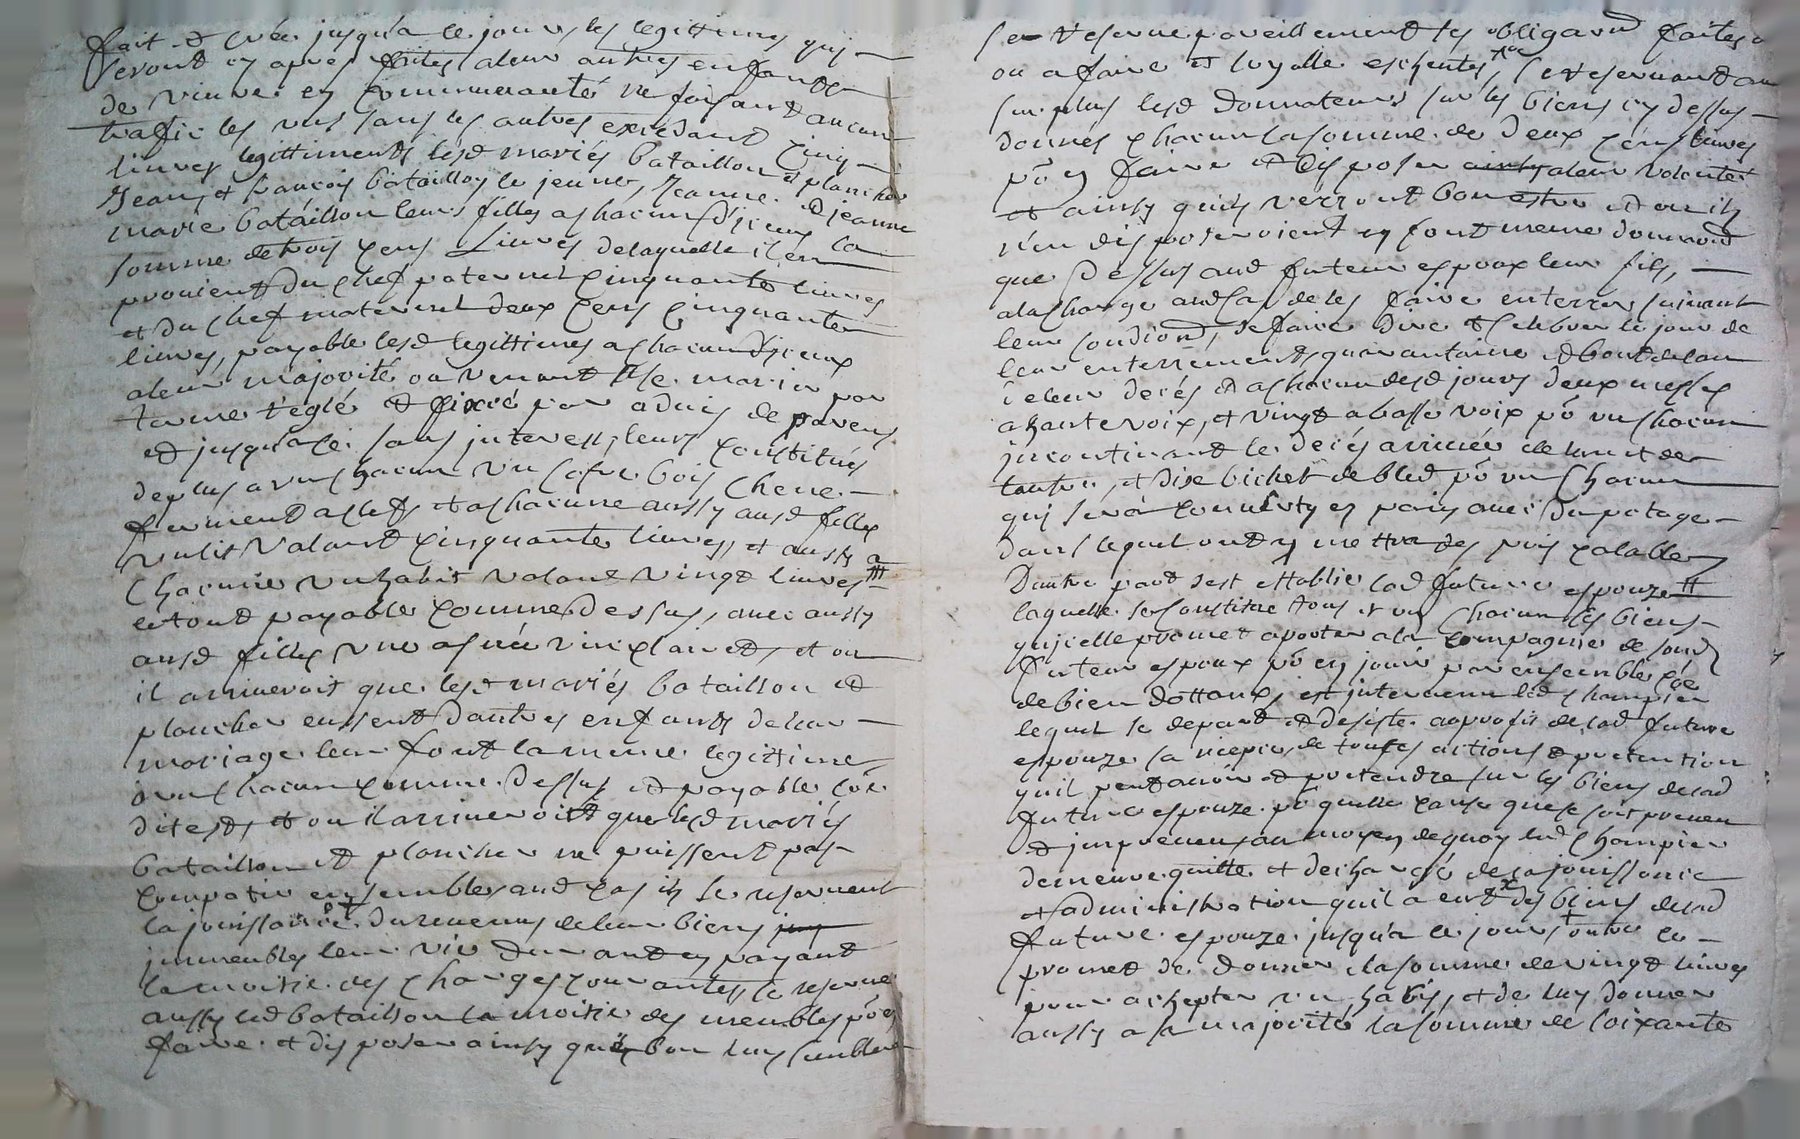 fait et créé jusqua ce jour, les legittimes quj
seront cy apres faites aleur autres enfants
de vivre en communauté ne faisant aucun
traffic les uns sans les autres excedant cinq
livres legittiments lesd mariés bataillon et plancher
Jean, et francois bataillon le jeune, Jeanne et jeanne
marie bataillon leurs filles a chacun d'jceux la
somme de trois cens livres de laquelle il en
provient du chef paternel cinquante livres
et du chef maternel deux cens cinquante
livres, payable lesd legittimes a chacun d'jceux
aleur majorité ou venant a se marier par
terme reglé et fixé par advis de parens
et jusqua ce sans jnterest, leurs constitués
de plus a un chacun un cofre bois chene
fermant a clefs et a chacune aussy ausd filles
un lit valant cinquante livres, et aussy a
chacune un habit valant vingt livres
le tout payable comme dessus, avec aussy
ausd filles une asnée vin clairet, et ou
il arriveroit que lesd mariés bataillon et
plancher eussent d'autres enfants de leur
mariage leur font la meme legittime
a un chacun comme dessus et payable coe
dit est, et ou il arriveroit que lesd mariés
bataillon et plancher ne puissent pas
compatir ensembles aud cas ils se reservent
la jouissance du revenus de leur biens
jmmeubles leur vie durant en payant
la moitie des charges courantes, se reserve
aussy led bataillon la moitie des meubles po en
faire et disposer ainsy que bon luy semblera
se reserve pareillement les obligaons faites
ou a faire et loyalle eschentes, se reservant au
surplus lesd donnateurs sur les biens cy dessus
donnés chacun la somme de deux cens livres
po en faire et disposer aleur volonté
et ainsy quils verront bon estre et ou ils
n'en disposeroient en font meme donnaon
que dessus aud futeur espoux leur fils,
a la charge aud cas de les faire enterrer suivant
leur condion, de faire dire et celebrer le jour de
leur enterrement, quarantaine et bout de lan
de leur decés et a chacun desd jours deux messes
a haute voix, et vingt a basse voix po un chacun
jncontinant le decés arrivée de lun et de
lautre, et dixe bichet de bled po un chacun
quj sera converty en pain avec du potage
dans lequel ont y mettra des pois calable
Dautre part sest etablie lad future espouze
laquelle se constitue tous et un chacun les biens
qujcelle promet aporter a la compagnie de sond
futeur espoux po en jouir par ensemble coe
de bien dottaux, est jntervenu led champier
lequel se depart et desiste au profit de lad future
espouze sa niepce de toutes actions et pretention
qu'il peut avoir et pretendre sur les biens de lad
future espouze po quelle cause que se soit preveu
et jmpreveu, au moyen de quoy led champier
demeure quitte et dechargé de la jouissance
et administration quil a eut des biens de lad
future espouze jusqua ce jour, outre ce
promet de donner la somme de vingt livres
pour achepter un habis, et de luy donner
aussy a sa majorité la somme de soixante